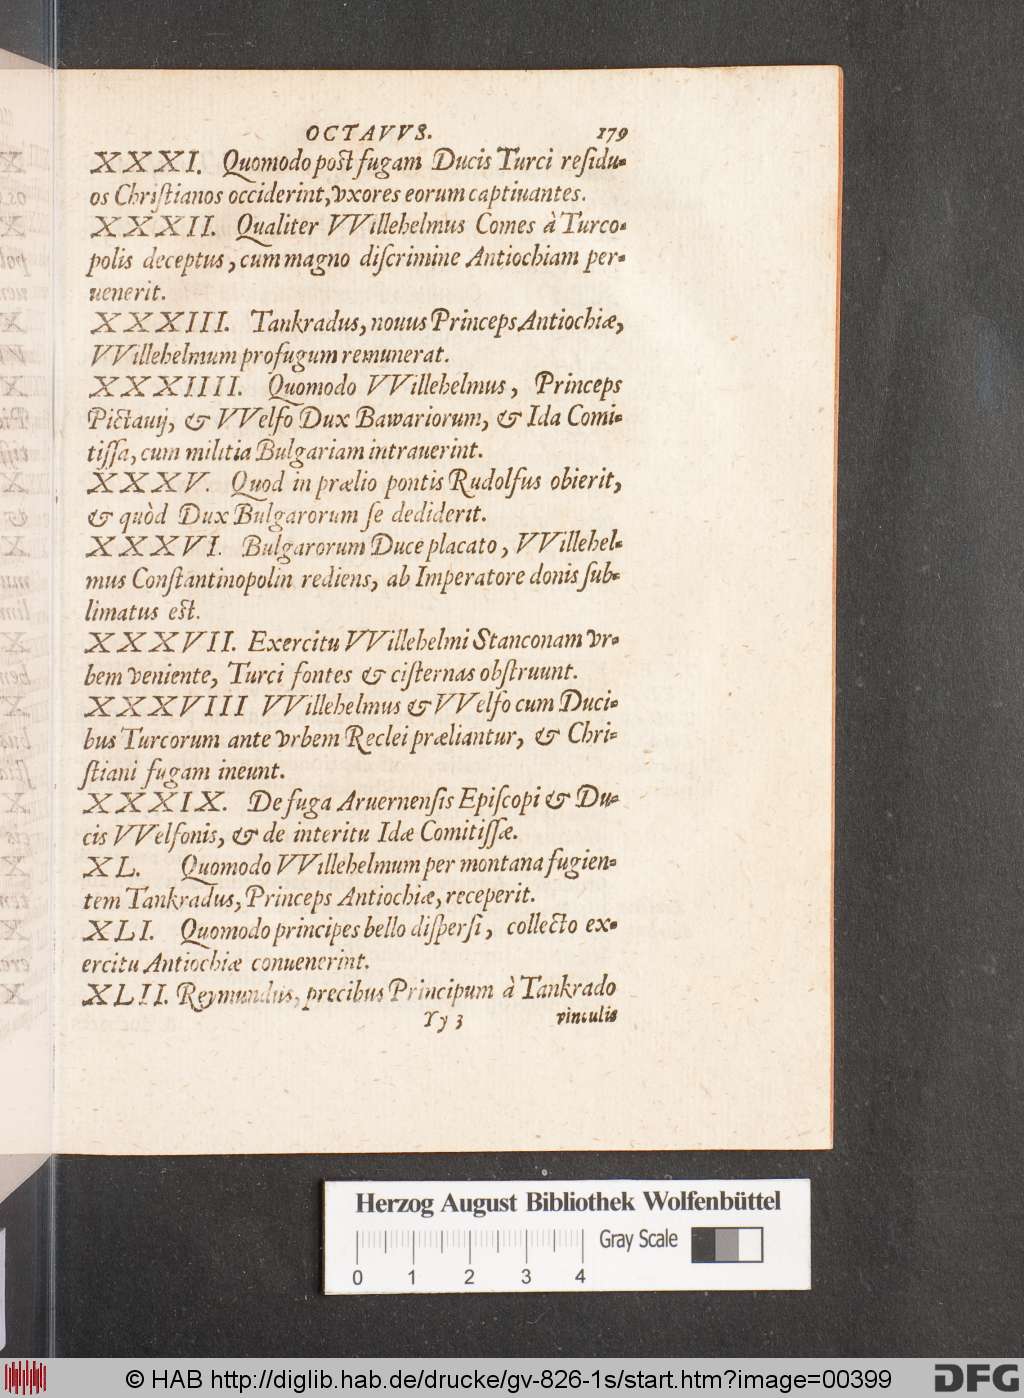 OCTAVVS. 179
XXXI. Quomodo post fugam Ducis Turci reſidu-
os Chriſtianos occiderint, vxores eorum captiuantes.
XXXII. Qualiter VVillehelmus Comes à Turco-
polis deceptus, cum magno diſcrimine Antiochiam per-
uenerit.
XXXIII. Tankradus, nouus Princeps Antiochiæ,
VVillehelmum profugum remunerat.
XXXIIII. Quomodo VVillehelmus, Princeps
Pictauij, & VVelfo Dux Bawariorum, & Ida Comi-
tiſſa, cum militia Bulgariam intrauerint.
XXXV. Quod in prælio pontis Rudolfus obierit,
& quòd Dux Bulgarorum ſe dediderit.
XXXVI. Bulgarorum Duce placato, VVillehel-
mus Conſtantinopolin rediens, ab Imperatore donis ſub-
limatus est.
XXXVII. Exercitu VVillehelmi Stanconam vr-
bem veniente, Turci fontes & ciſternas obſtruunt.
XXXVIII VVillehelmus & VVelfo cum Duci-
bus Turcorum ante vrbem Reclei præliantur, & Chri-
ſtiani fugam ineunt.
XXXIX. De fuga Aruernenſis Epiſcopi & Du-
cis VVelfonis, & de interitu Idæ Comitiſſæ.
XL. Quomodo VVillehelmum per montana fugien-
tem Tankradus, Princeps Antiochiæ, receperit.
XLI. Quomodo principes bello diſperſi, collecto ex-
ercitu Antiochiæ conuenerint.
XLII. Reymundus, precibus Principum à Tankrado
Yy 3 vinculis
Herzog August Bibliothek Wolfenbüttel
Gray Scale
0 1 2 3 4
© HAB http://diglib.hab.de/drucke/gv-826-1s/start.htm?image=00399
DFG